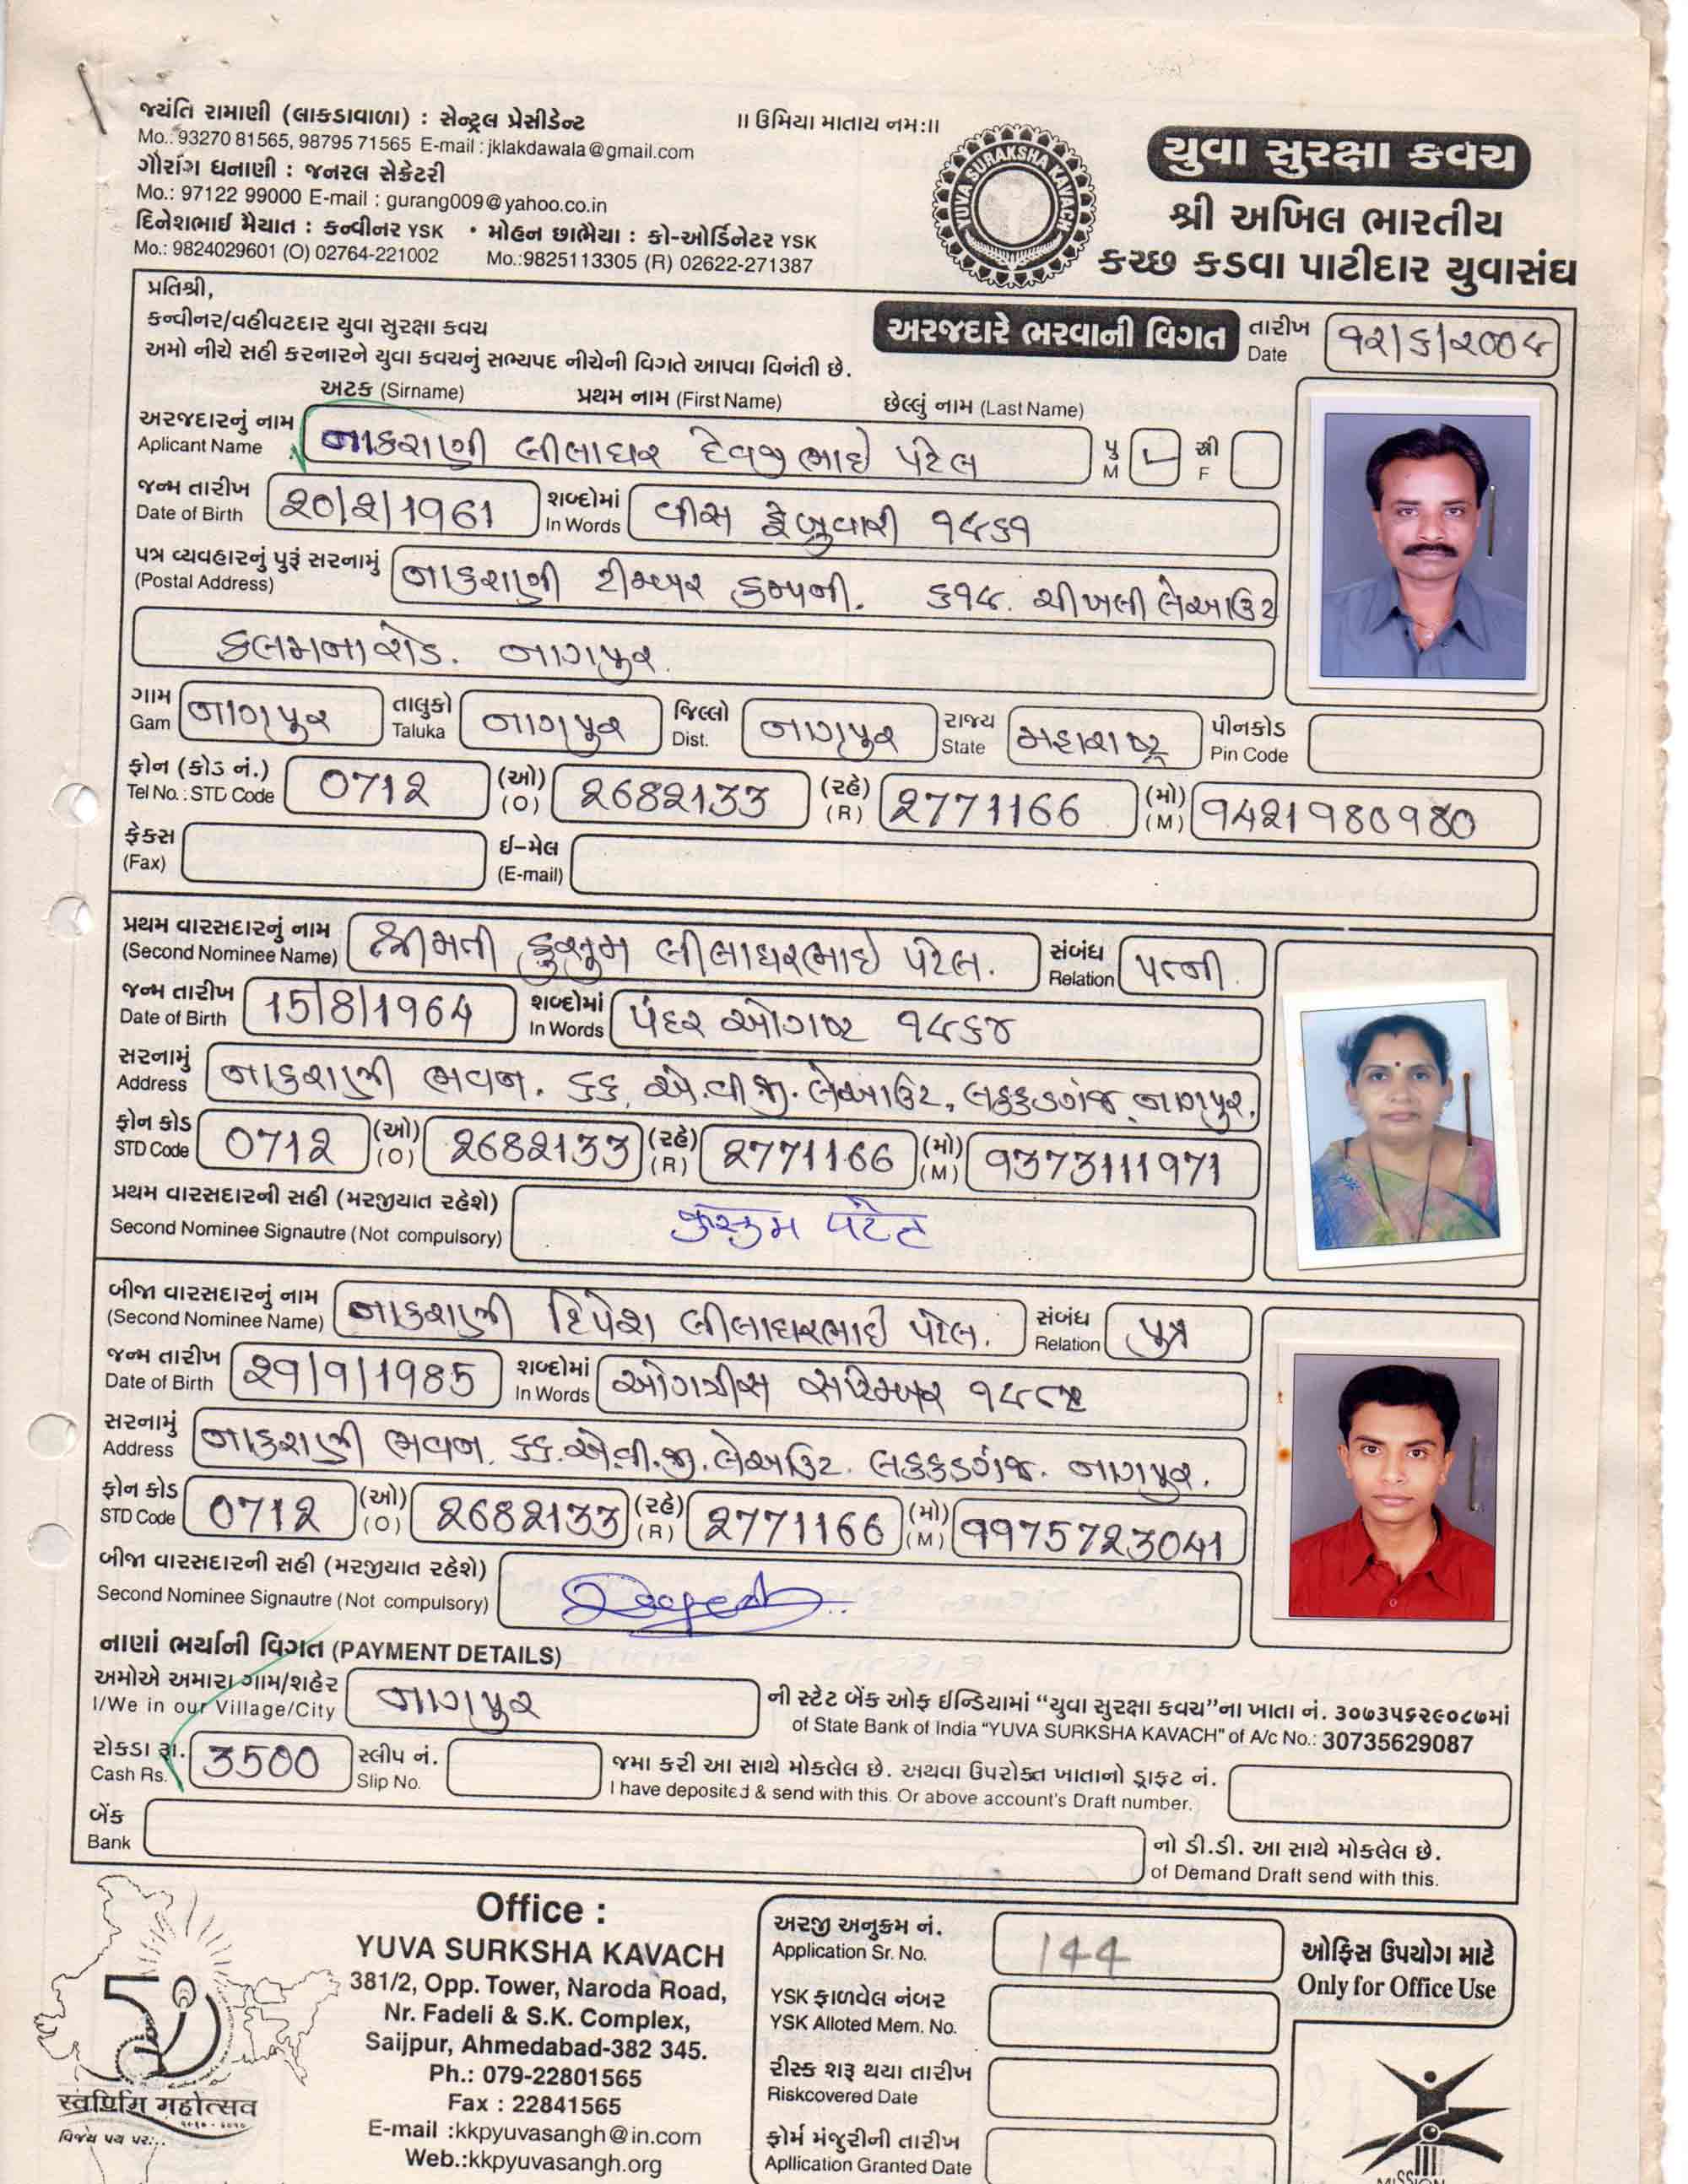 જયંતિ રામાણી (લાકડાવાળા) : સેન્ટ્રલ પ્રેસીડેન્ટ
Mo.: 93270 81565, 98795 71565 E-mail : jklakdawala@gmail.com
ગૌરાંગ ધનાણી : જનરલ સેક્રેટરી
Mo.: 97122 99000 E-mail : gurang009@yahoo.co.in
દિનેશભાઈ મૈયાત : કન્વીનર YSK • મોહન છાભૈયા : કો-ઓર્ડિનેટર YSK
Mo.: 9824029601 (O) 02764-221002 Mo.:9825113305 (R) 02622-271387
॥ ઉમિયા માતાય નમ:॥
YUVA SURAKSHA KAVACH
યુવા સુરક્ષા કવચ
શ્રી અખિલ ભારતીય
કચ્છ કડવા પાટીદાર યુવાસંઘ
પ્રતિશ્રી,
કન્વીનર/વહીવટદાર યુવા સુરક્ષા કવચ
અમો નીચે સહી કરનારને યુવા કવચનું સભ્યપદ નીચેની વિગતે આપવા વિનંતી છે.
અરજદારે ભરવાની વિગત
તારીખ Date ૧૨/૬/૨૦૦૯
અટક (Sirname) પ્રથમ નામ (First Name) છેલ્લું નામ (Last Name)
અરજદારનું નામ Aplicant Name નાકરાણી લીલાધર દેવજીભાઈ પટેલ પુ M સ્ત્રી F
જન્મ તારીખ Date of Birth 20/2/1961 શબ્દોમાં In Words વીસ ફેબ્રુવારી ૧૯૬૧
પત્ર વ્યવહારનું પુરૂં સરનામું (Postal Address) નાકરાણી ટીમ્બર કમ્પની. ૬૧૯. ચીખલી લેઆઉટ
કલમના રોડ. નાગપુર.
ગામ Gam નાગપુર તાલુકો Taluka નાગપુર જિલ્લો Dist. નાગપુર રાજ્ય State મહારાષ્ટ્ર પીનકોડ Pin Code
ફોન (કોડ નં.) Tel No. : STD Code 0712 (ઓ) (O) 2682133 (રહે) (R) 2771166 (મો) (M) 9421980980
ફેક્સ (Fax) ઈ-મેલ (E-mail)
પ્રથમ વારસદારનું નામ (Second Nominee Name) શ્રીમતી કુસુમ લીલાધરભાઈ પટેલ. સંબંધ Relation પત્ની.
જન્મ તારીખ Date of Birth 15/8/1964 શબ્દોમાં In Words પંદર ઓગષ્ટ ૧૯૬૪
સરનામું Address નાકરાણી ભવન. ૬૬, એ.વી.જી. લેઆઉટ, લકકડગંજ નાગપુર.
ફોન કોડ STD Code 0712 (ઓ) (O) 2682133 (રહે) (R) 2771166 (મો) (M) 9373111971
પ્રથમ વારસદારની સહી (મરજીયાત રહેશે) કુસુમ પટેલ
Second Nominee Signautre (Not compulsory)
બીજા વારસદારનું નામ (Second Nominee Name) નાકરાણી દિપેશ લીલાધરભાઈ પટેલ. સંબંધ Relation પુત્ર
જન્મ તારીખ Date of Birth 29/9/1985 શબ્દોમાં In Words ઓગત્રીસ સપ્ટેમ્બર ૧૯૮૫
સરનામું Address નાકરાણી ભવન. ૬૬. એ.વી.જી. લેઆઉટ. લકકડગંજ. નાગપુર.
ફોન કોડ STD Code 0712 (ઓ) (O) 2682133 (રહે) (R) 2771166 (મો) (M) 9975723041
બીજા વારસદારની સહી (મરજીયાત રહેશે)
Second Nominee Signautre (Not compulsory)
નાણાં ભર્યાની વિગત (PAYMENT DETAILS)
અમોએ અમારા ગામ/શહેર નાગપુર ની સ્ટેટ બેંક ઓફ ઈન્ડિયામાં “યુવા સુરક્ષા કવચ”ના ખાતા નં. ૩૦૭૩૫૬૨૯૦૮૭માં
I/We in our Village/City of State Bank of India “YUVA SURKSHA KAVACH” of A/c No.: 30735629087
રોકડા રૂા. Cash Rs. 3500 સ્લીપ નં. Slip No. જમા કરી આ સાથે મોકલેલ છે. અથવા ઉપરોક્ત ખાતાનો ડ્રાફ્ટ નં.
I have deposited & send with this. Or above account's Draft number.
બેંક Bank નો ડી.ડી. આ સાથે મોકલેલ છે.
of Demand Draft send with this.
स्वर्णिम महोत्सव
વિજય પથ પર...
Office :
YUVA SURKSHA KAVACH
381/2, Opp. Tower, Naroda Road,
Nr. Fadeli & S.K. Complex,
Saijpur, Ahmedabad-382 345.
Ph.: 079-22801565
Fax : 22841565
E-mail :kkpyuvasangh@in.com
Web.:kkpyuvasangh.org
અરજી અનુક્રમ નં. Application Sr. No. 144
YSK ફાળવેલ નંબર
YSK Alloted Mem. No.
રીસ્ક શરૂ થયા તારીખ
Riskcovered Date
ફોર્મ મંજુરીની તારીખ
Apllication Granted Date
ઓફિસ ઉપયોગ માટે
Only for Office Use
MISSION